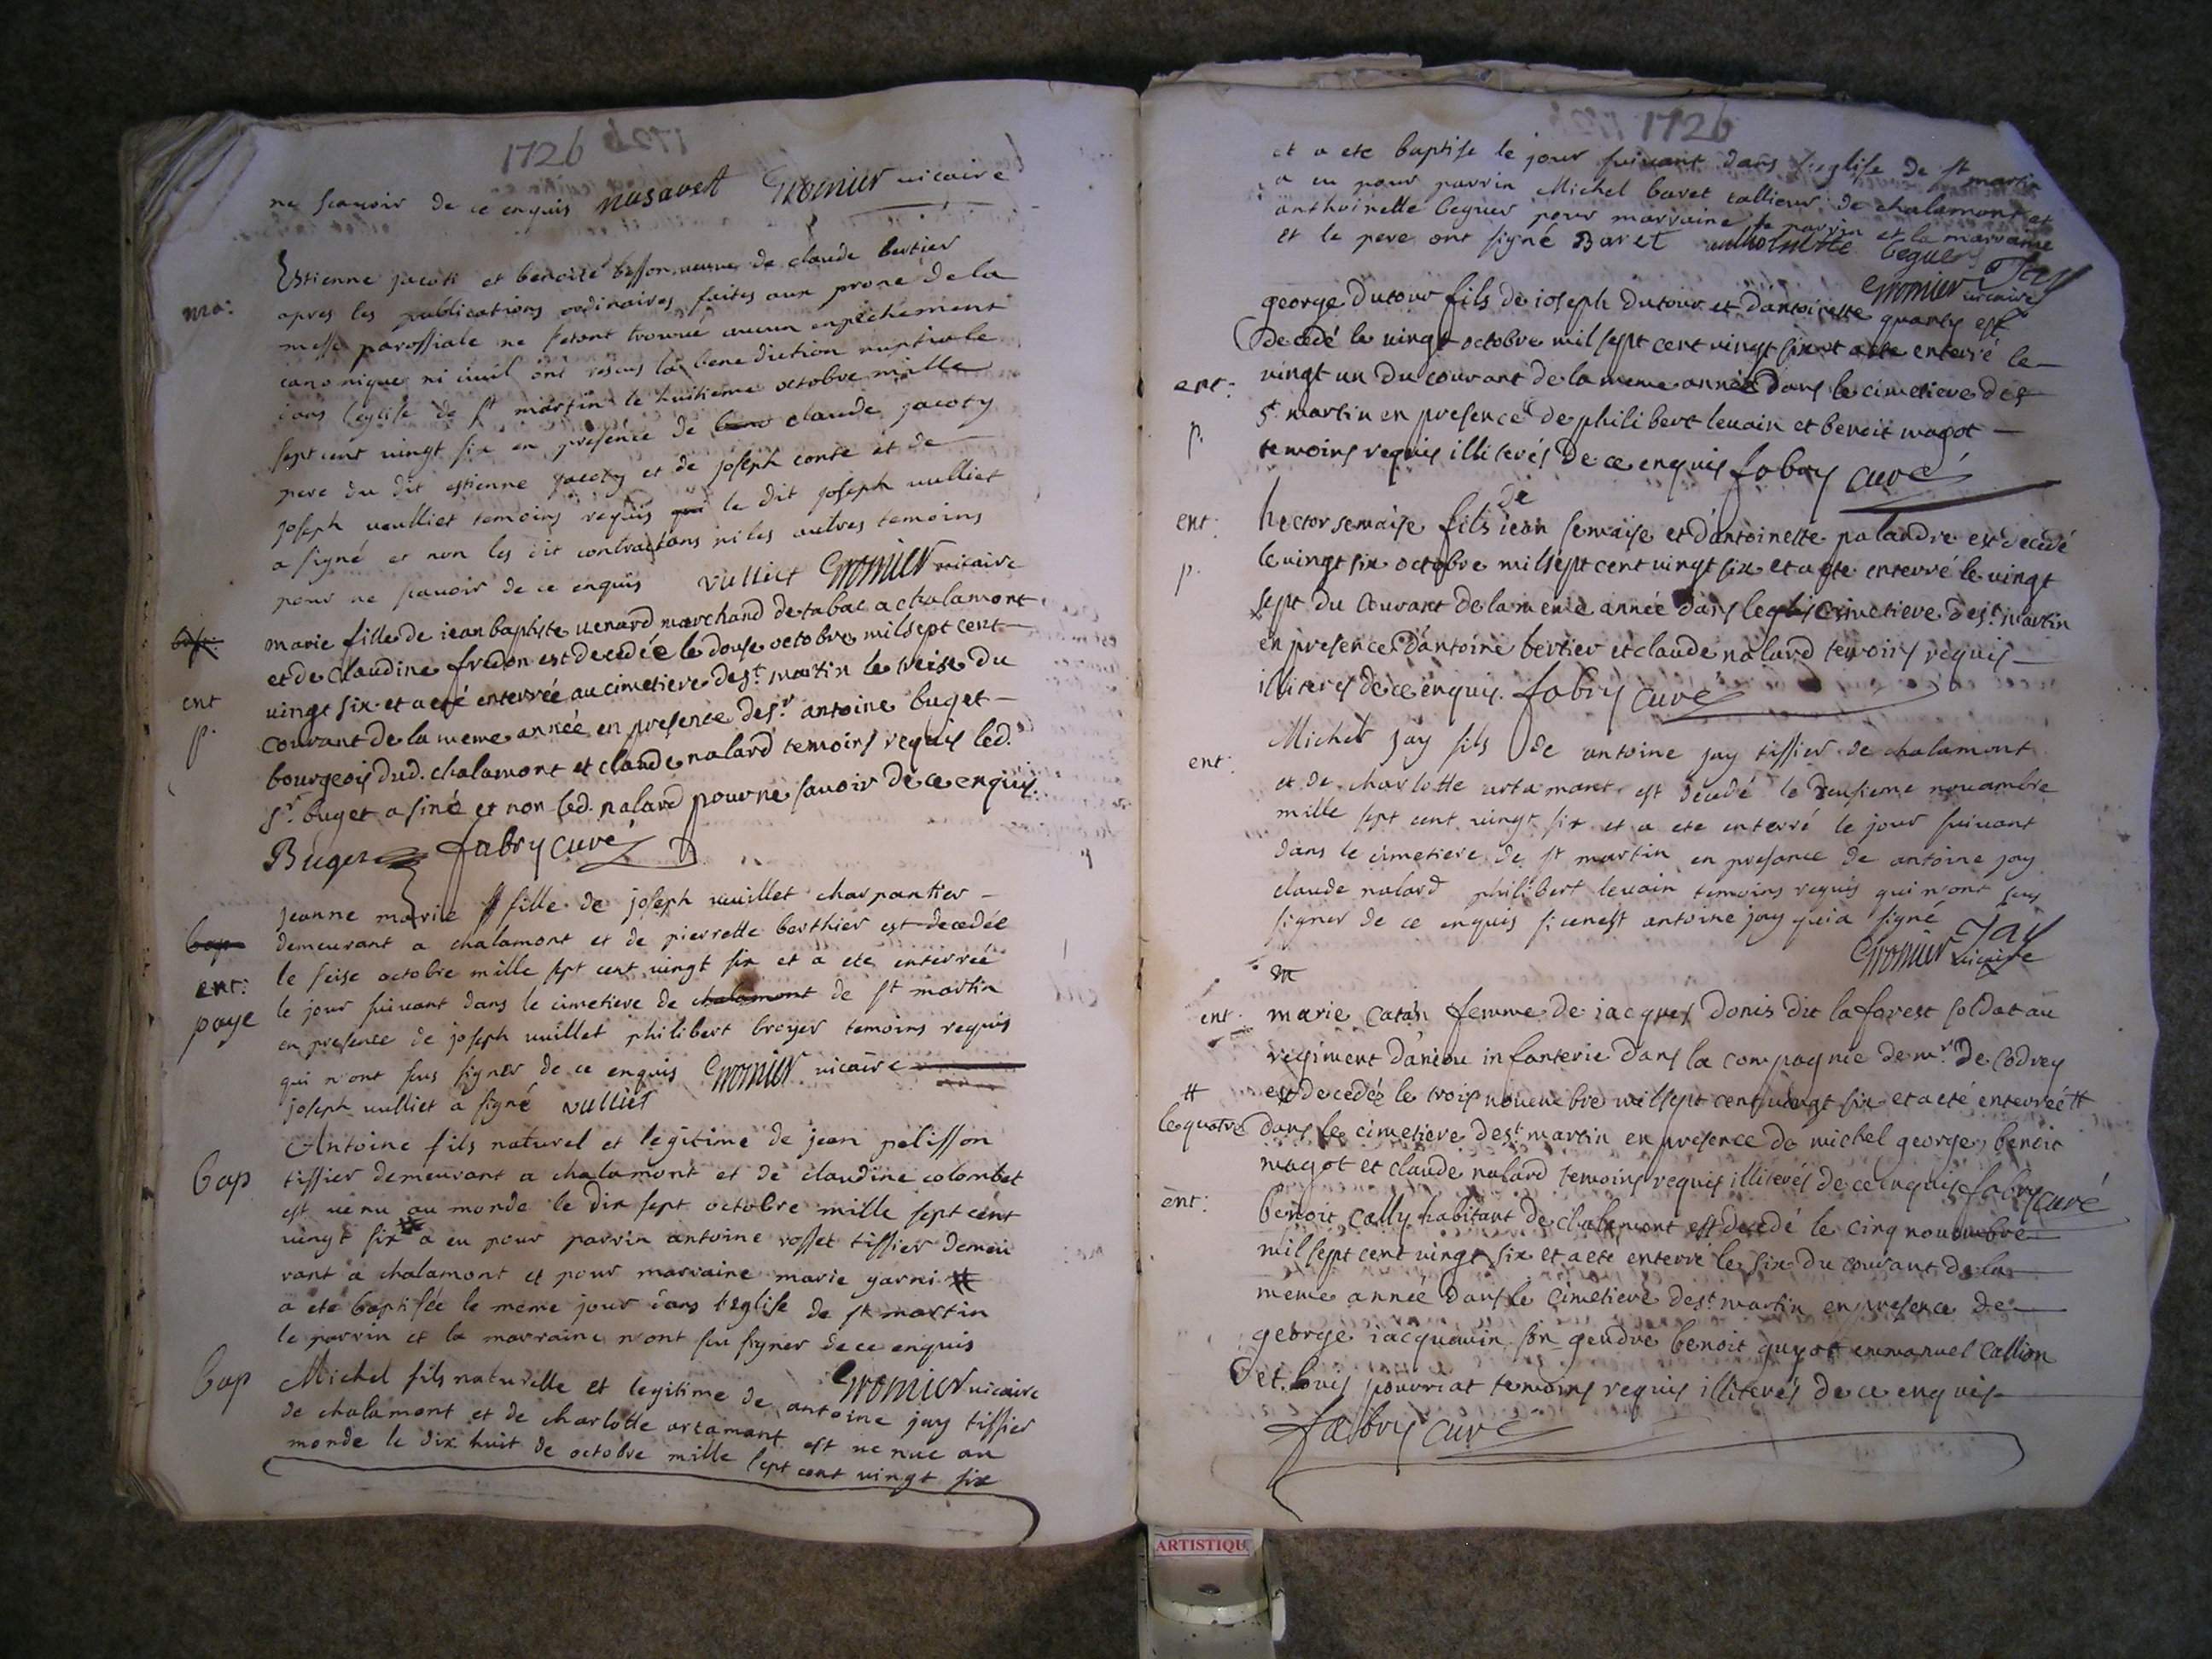 1726
ne scavoir de ce enquis nusavest Gromier vicaire
ma:
Estienne jacoti et benoite besson veuve de claude bertier
apres les publications ordinaires faites aux prone de la
messe paroissiale ne setant trouvue aucun enpechement
canonique ni civil ont resus la benediction nuptiale
dans leglise de st martin le huitieme octobre mille
sept cent vingt six en presence de claude jacoty
pere du dit estienne jacoty et de joseph conte et de
joseph veulliet temoins requis le dit joseph vulliet
a signé et non les dit contractans ni les autres temoins
pour ne scavoir de ce enquis vulliet Gromier vicaire
marie fille de iean baptiste venard marchand de tabac a chalamont
et de claudine fredon est decedée le douse octobre mil sept cent
ent
vingt six et a eté enterrée au cimetiere de st martin le treise du
p.
courant de la meme année en presence de sr antoine buget
bourgeois dud. chalamont et claude nalard temoins requis led.
sr buget a siné et non led. nalard pour ne savoir de ce enquis.
Buget fabry curé
jeanne marie fille de joseph vuillet charpantier
bap
demeurant a chalamont et de pierrette berthier est decedée
ent:
le seise octobre mille sept cent vingt six et a ete enterrée
paye
le jour suivant dans le cimetiere de chalamont de st martin
en presence de joseph vuillet philibert broyer temoins requis
qui n'ont sus signer de ce enquis Gromier vicaire
joseph vulliet a signé vulliet
Antoine fils naturel et legitime de jean pelisson
bap
tissier demeurant a chalamont et de claudine colombet
est venu au monde le dix sept octobre mille sept cent
vingt six # a eu pour parrin antoine rosset tissier demeu
rant a chalamont et pour marraine marie garni #
a ete baptisée le meme jour dans l'eglise de st martin
le parrin et la marraine n'ont su signer de ce enquis
Gromier vicaire
bap
Michel fils naturelle et legitime de antoine jay tissier
de chalamont et de charlotte artamant est ne nue au
monde le dix huit de octobre mille sept cent vingt six
1726
et a ete baptise le jour suivant dans l'eglise de st martin
a eu pour parrin Michel baret tallieur de chalamont et
anthoinette beguer pour marraine le parrin et la marraine
et le pere ont signé Baret anthoinette beguer
Gromier vicaire Jay
george dutour fils de ioseph dutour et d'antoinette quarty est
decedé le vingt octobre mil sept cent vingt six et a ete enterré le
ent:
vingt un du courant de la meme année dans le cimetiere de
p.
st martin en presence de philibert levain et benoit magot
temoins requis illiterés de ce enquis fabry curé
ent:
hector semaise fils de iean semaise et d'antoinette palandre est decedé
p.
le vingt six octobre mil sept cent vingt six et a ete enterré le vingt
sept du courant de la meme année dans le cimetiere de st martin
en presence d'antoine bertier et claude nalard temoins requis
illiterés de ce enquis. fabry curé
ent:
Michel jay fils de antoine jay tissier de chalamont
et de charlotte artamant est decedé le deusieme novambre
mille sept cent vingt six et a ete enterré le jour suivant
dans le cimetiere de st martin en presance de antoine jay
claude nalard philibert levain temoins requis qui n'ont sus
signer de ce enquis si cenest antoine jay qui a signé
Gromier vicaire Jay
ent
marie catan femme de iacques donis dit la forest soldat au
regiment d'aniou infanterie dans la compagnie de mr. de codrey
est decedée le trois novembre mil sept cent vingt six et a eté enterrée #
# le quatre
dans le cimetiere de st martin en presence de michel george, benoit
magot et claude nalard temoins requis illiterés de ce enquis fabry curé
ent:
benoit cally habitant de chalamont est decedé le cinq novembre
mil sept cent vingt six et a ete enterré le six du courant de la
meme année dans le cimetiere de st martin en presence de
george iacquemin son gendre benoit guyot emmanuel callion
et louis pourrat temoins requis illiterés de ce enquis
fabry curé
ARTISTIQU